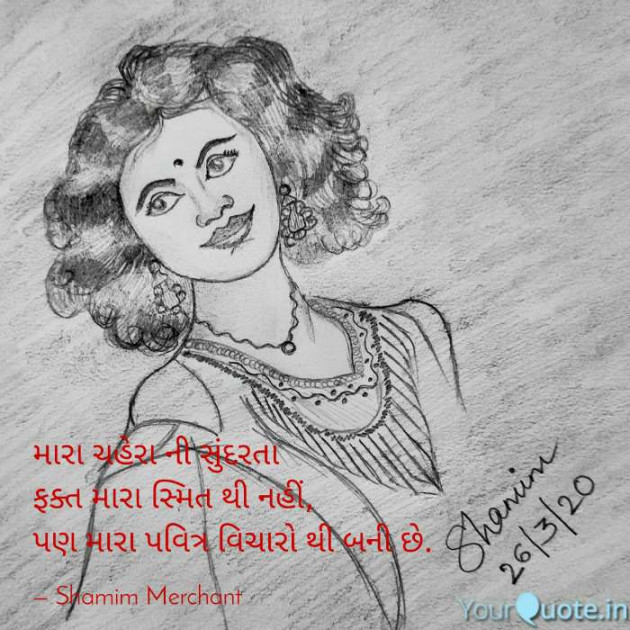 મારા ચહેરા ની સુંદરતા
ફક્ત મારા સ્મિત થી નહીં,
પણ મારા પવિત્ર વિચારો થી બની છે.
– Shamim Merchant
Shamim
26/3/20
YourQuote.in